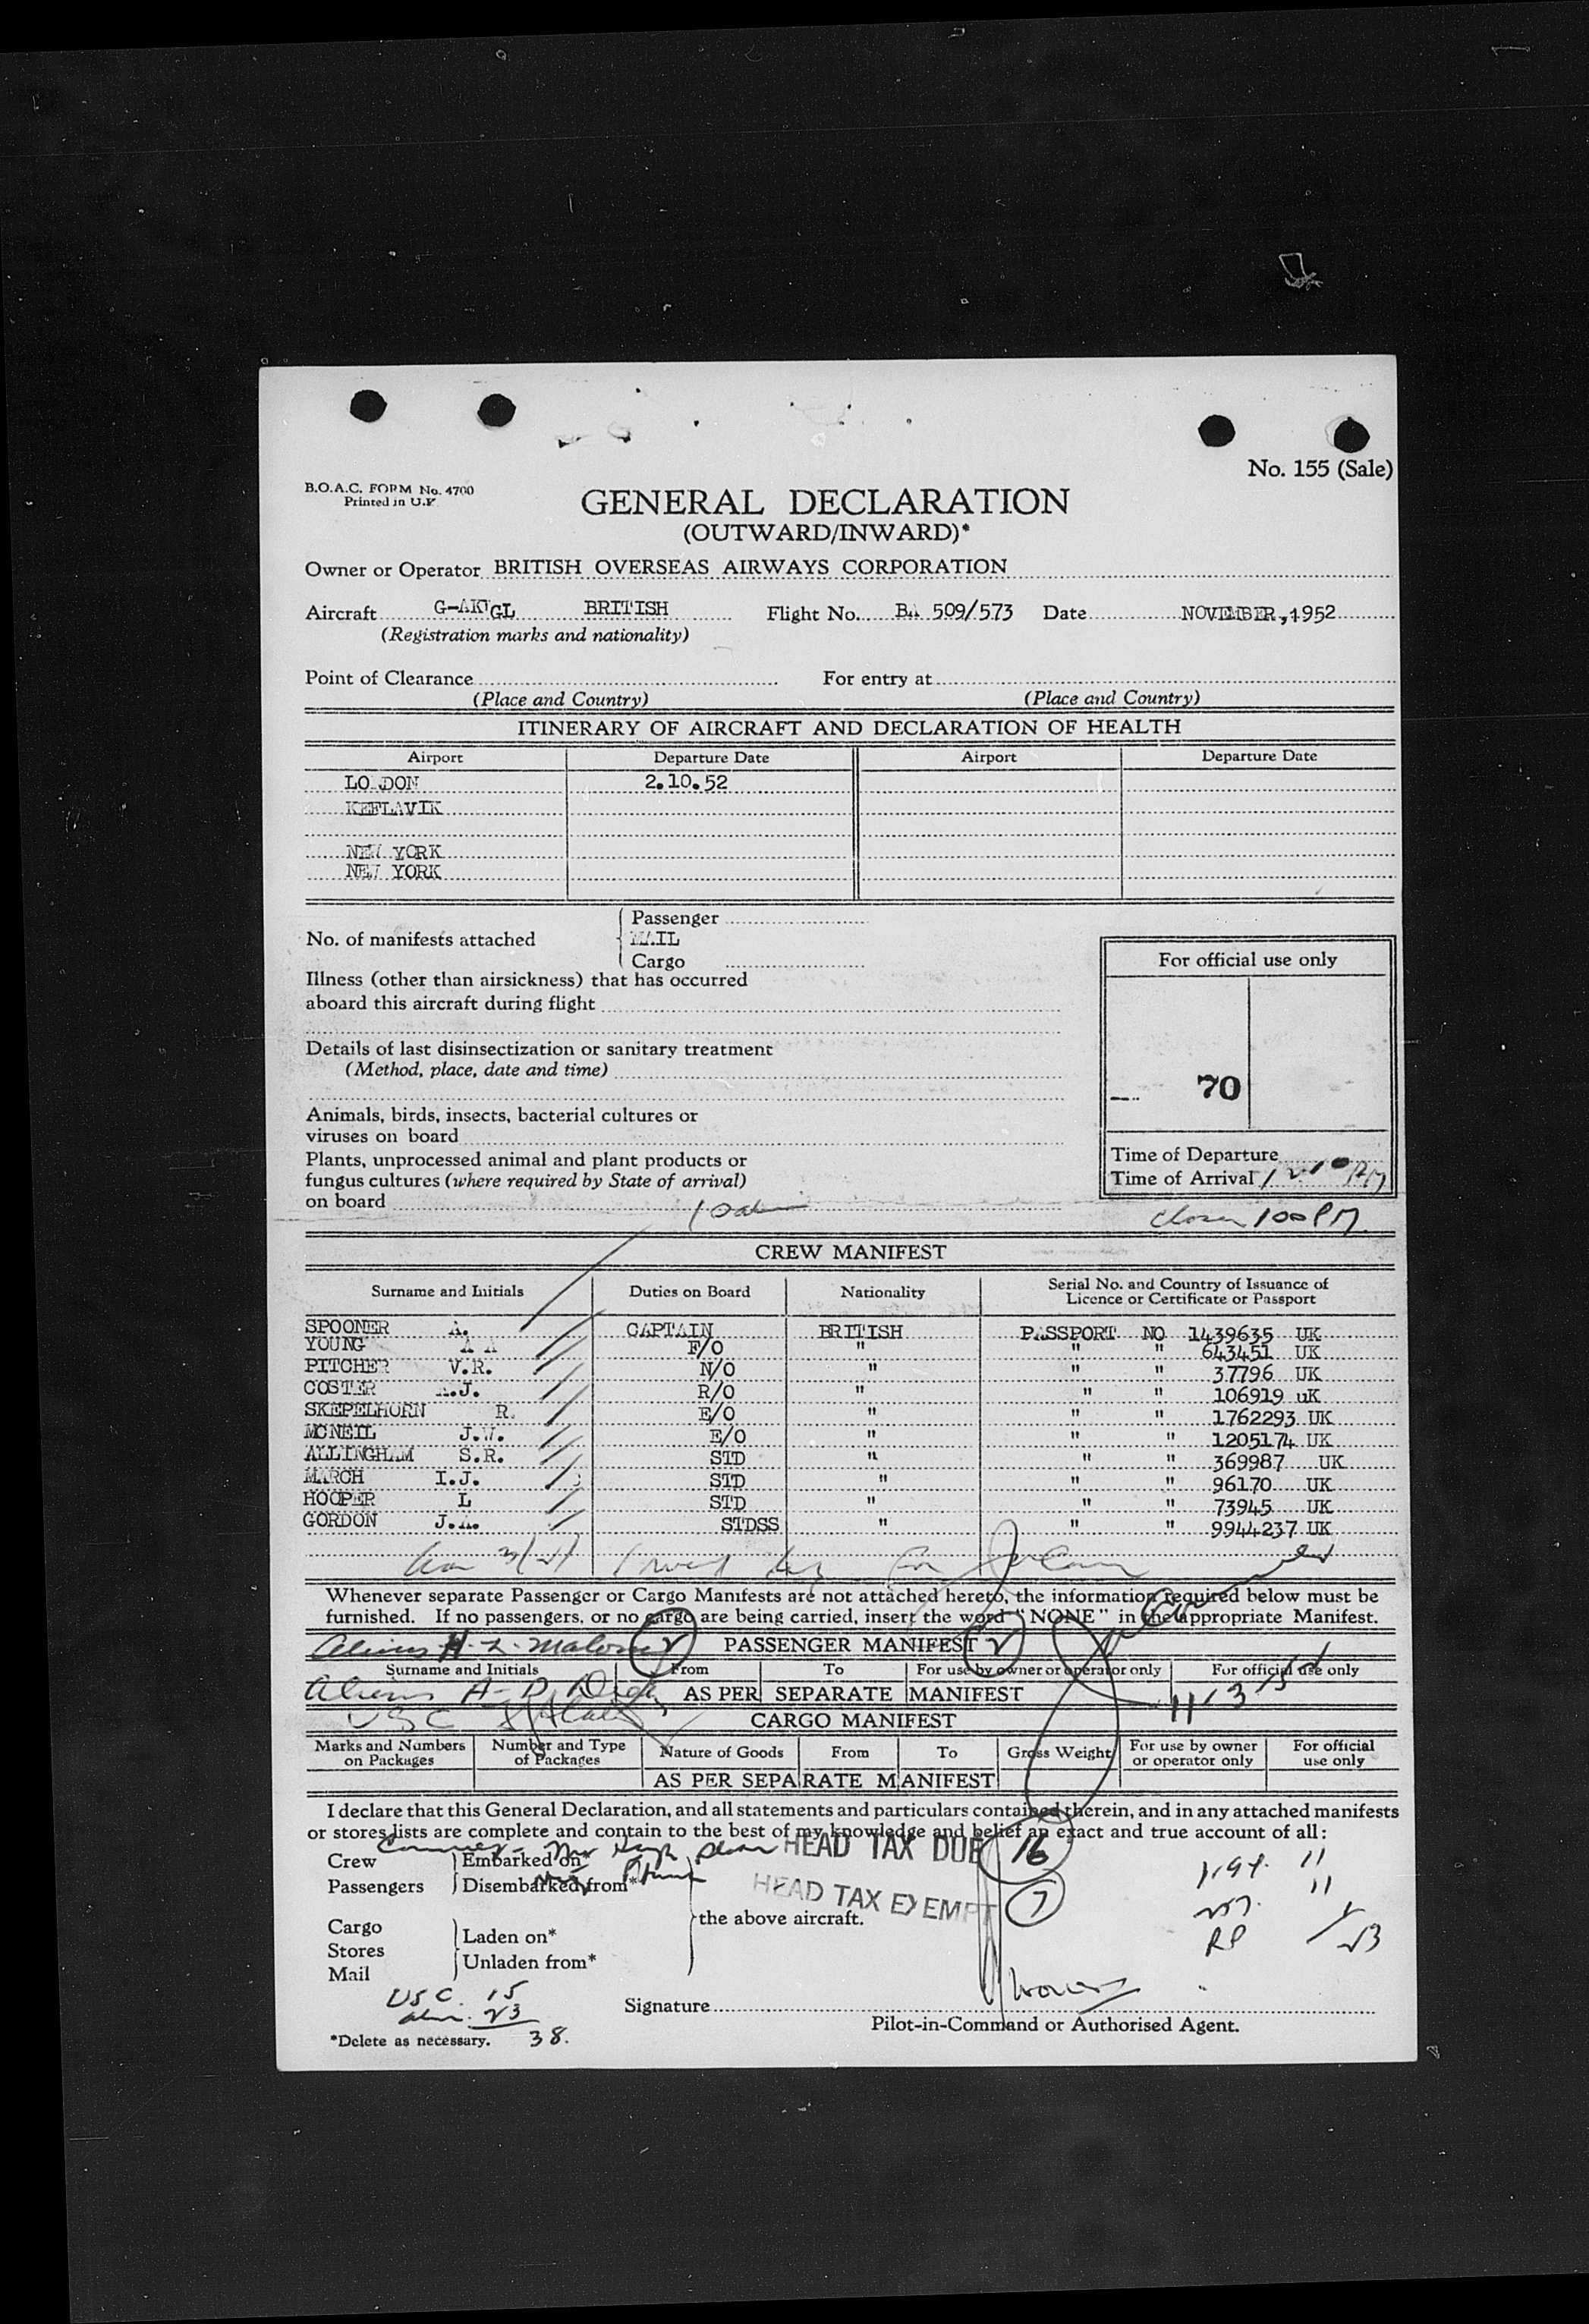 No. 155 (Sale)
B.O.A.C. FORM No. 4700
Printed in U.K.
GENERAL DECLARATION
(OUTWARD/INWARD)*
Owner or Operator BRITISH OVERSEAS AIRWAYS CORPORATION
Aircraft BRITISH Flight No. BA 509/573 Date NOVEMBER, 1952
(Registration marks and nationality)
Point of Clearance For entry at
(Place and Country) (Place and Country)
ITINERARY OF AIRCRAFT AND DECLARATION OF HEALTH
Airport Departure Date Airport Departure Date
LONDON 2.10.52
KEFLAVIK
NEW YORK
NEW YORK
Passenger
No. of manifests attached MAIL
Cargo
For official use only
Illness (other than airsickness) that has occurred
aboard this aircraft during flight
Details of last disinsectization or sanitary treatment
(Method, place, date and time)
70
Animals, birds, insects, bacterial cultures or
viruses on board
Plants, unprocessed animal and plant products or
fungus cultures (where required by State of arrival)
on board
Time of Departure
Time of Arrival 1210 PM
100 PM
CREW MANIFEST
Surname and Initials Duties on Board Nationality Serial No. and Country of Issuance of
Licence or Certificate or Passport
SPOONER A. CAPTAIN BRITISH PASSPORT NO 1439635 UK
YOUNG A A F/O " " " 643451 UK
PITCHER V.R. N/O " " " 37796 UK
COSTER A.J. R/O " " " 106919 uK
SKEPELHORN R. E/O " " " 1762293 UK
MCNEIL J.W. E/O " " " 1205174 UK
ALLINGHAM S.R. STD " " " 369987 UK
MARCH I.J. STD " " " 96170 UK
HOOPER L STD " " " 73945 UK
GORDON J.A. STDSS " " " 9944237 UK
Whenever separate Passenger or Cargo Manifests are not attached hereto, the information required below must be
furnished. If no passengers, or no cargo are being carried, insert the word "NONE" in the appropriate Manifest.
Aliens H. L. Malony 2 PASSENGER MANIFEST 2
Surname and Initials From To For use by owner or operator only For official use only
Aliens A-D AS PER SEPARATE MANIFEST
USC CARGO MANIFEST
Marks and Numbers on Packages Number and Type of Packages Nature of Goods From To Gross Weight For use by owner or operator only For official use only
AS PER SEPARATE MANIFEST
I declare that this General Declaration, and all statements and particulars contained therein, and in any attached manifests
or stores lists are complete and contain to the best of my knowledge and belief an exact and true account of all:
HEAD TAX DUE 16
Crew Embarked on*
Passengers Disembarked from*
HEAD TAX EXEMPT 7
the above aircraft.
Cargo Laden on*
Stores
Unladen from*
Mail
USC. 15
23
38.
Signature
Pilot-in-Command or Authorised Agent.
*Delete as necessary.